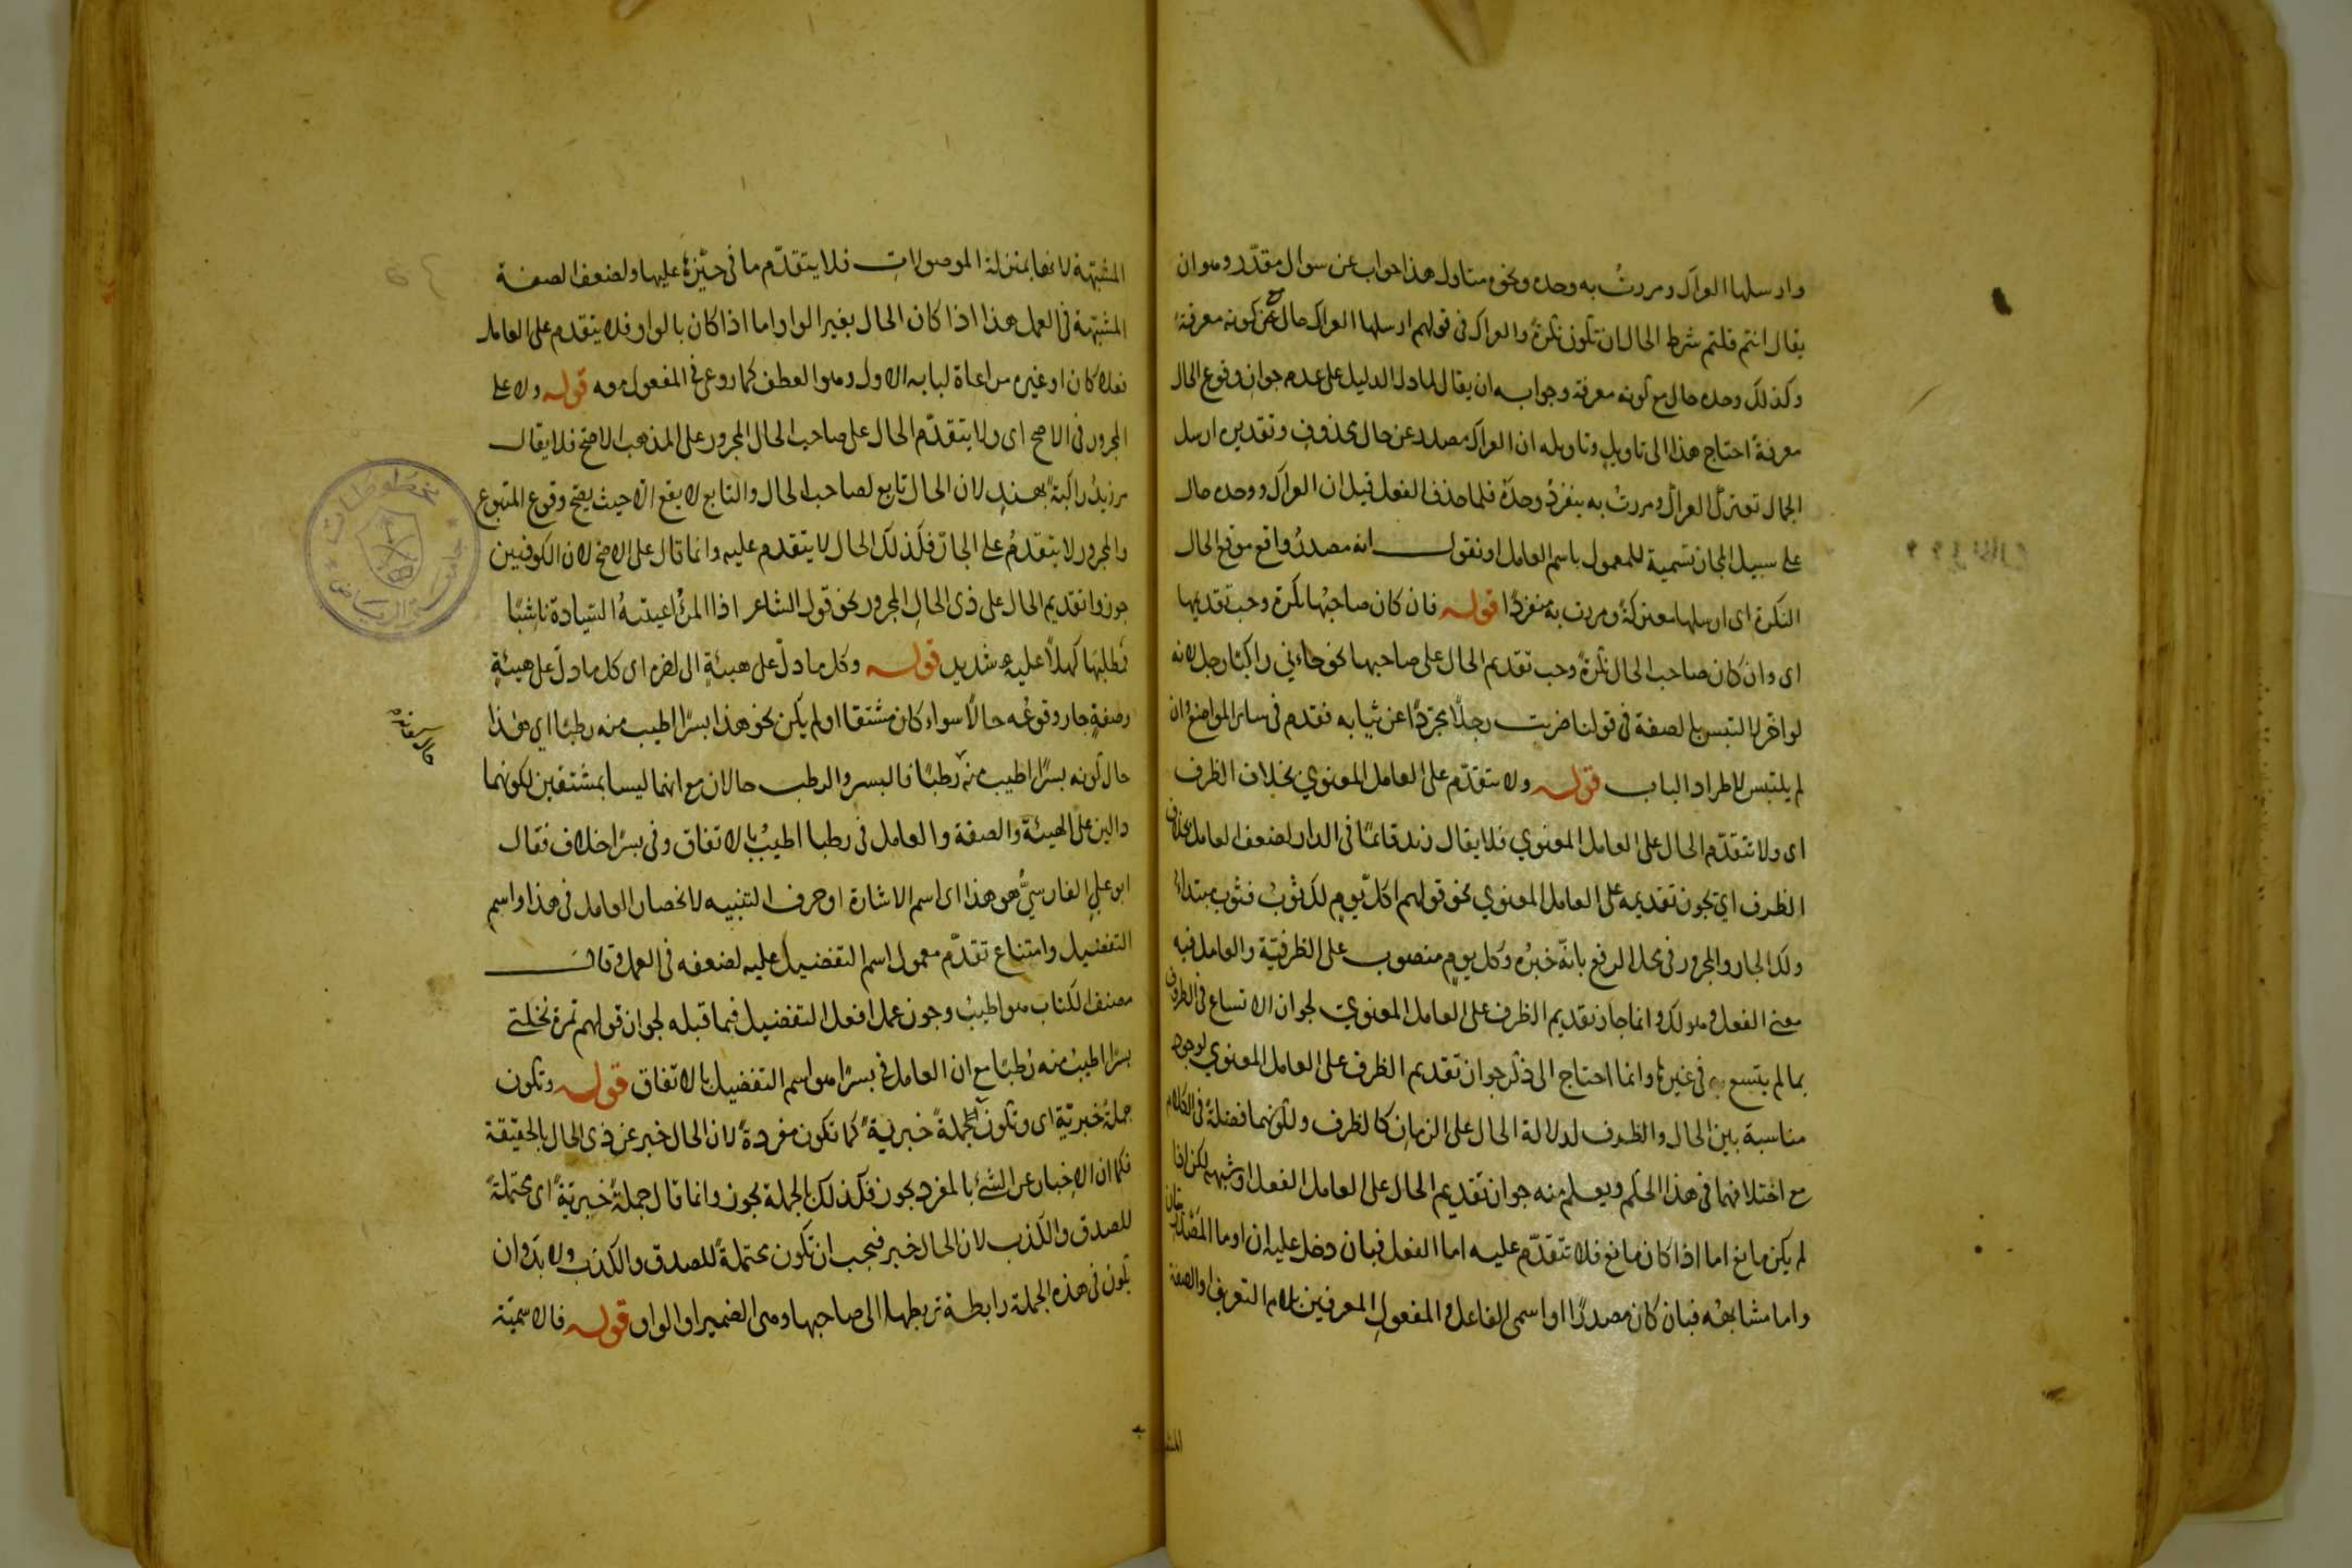 وارسلها العراك ومررت به وحده ونحوه متاول هذا جواب عن سوال مقدّر وهو ان
يقال انتم قلتم شرط الحال ان تكون نكرةً والعراك في قولهم ارسلها العراك حال مع كونه معرفةً
وكذلك وحده حال مع كونه معرفة وجوابه ان يقال لما دل الدليل على عدم جواز وقوع الحال
معرفةً احتاج هذا الى تاويلٍ وتاويله ان العراك مصدر عن حال محذوف وتقديره ارسل
الجمال تعترك العراك ومررتُ به ينفرد وحدَه فلما حذف الفعل قيل ان العراك ووحده حال
على سبيل المجاز تسمية للمعمول باسم العامل او نقول انه مصدرٌ واقع موقع الحال
النكرة اى ارسلها معتركةً ومررت به منفردًا قوله فان كان صاحبُها نكرة وجب تقديمها
اى وان كان صاحب الحال نكرةً وجب تقديم الحال على صاحبها نحو جاءني راكبًا رجل لانه
لو اخّر لالتبس بالصفة في قولنا ضربت رجلًا مجردًا عن ثيابه فقدم في سائر المواضع وان
لم يلتبس لاطراد الباب قوله ولا يتقدّم على العامل المعنوي بخلاف الظرف
اى ولا تتقدّم الحال على العامل المعنوي فلا يقال زيد قائمًا في الدار لضعف العامل بخلاف
الظرف اي يجوز تقديمه على العامل المعنوي نحو قولهم اكلّ يومٍ لك ثوبٌ فثوب مبتداءٌ
ولك الجار والمجرور في محل الرفع بانّه خبرُه وكل يومٍ منصوب على الظرفيّة والعامل فيه
معنى الفعل وهو لك وانما جاز تقديم الظرف على العامل المعنوي لجواز الاتساع في الظروف
بما لم يتسع به في غيرها وانما احتاج الى ذكر جواز تقديم الظرف على العامل المعنوي لوجود
مناسبة بين الحال والظرف لدلالة الحال على الزمان كالظرف ولكونهما فضلةً في الكلام
مع اختلافهما في هذا الحكم ويعلم منه جواز تقديم الحال على العامل الفعل او شبهه لكن اذا
لم يكن مانع اما اذا كان مانع فلا تتقدّم عليه اما الفعل فبان دخل عليه ان او ما المصدريتان
واما مشابهه فبان كان مصدرًا او اسمي الفاعل والمفعول المعرفين بلام التعريف او الصفة
المشبّهة لانها بمنزلة الموصولات فلا يتقدّم ما في حيّزها عليها ولضعف الصفة
المشبّهة في العمل هذا اذا كان الحال بغير الواو اما اذا كان بالواو فلا يتقدم على العامل
فعلا كان او غيره مراعاة لبابه الاول وهو العطف كما روعي في المفعول معه قوله ولا على
المجرور في الاصح اى ولا يتقدّم الحال على صاحب الحال المجرور على المذهب الاصح فلا يقال
مر زيدٌ راكبةً بهندٍ لان الحال تابع لصاحب الحال والتابع لا يقع الا حيث يصح وقوع المتبوع
والمجرور لا يتقدّمُ على الجارّ فكذلك الحال لا يتقدم عليه وانما قال على الاصح لان الكوفيين
جوزوا تقديم الحال على ذى الحال المجرور نحو قول الشاعر اذا المرءُ اعيتهُ السّيادة ناشئًا
فمطلبُها كهلًا عليه شديد قوله وكل ما دلّ على هيئةٍ الى اخره اى كل ما دلّ على هيئةٍ
وصفةٍ جاز وقوعُه حالًا سواء كان مشتقا او لم يكن نحو هذا بسرًا اطيب منه رطبًا اي هذا
حال كونه بسرًا اطيب منه رطبًا فالبسر والرطب حالان مع انهما ليسا بمشتقين لكونهما
دالين على الهيئة والصفة والعامل في رطبا اطيبُ بالاتفاق وفي بسرًا خلاف فقال
ابو علي الفارسيُّ هو هذا اى اسم الاشارة او حرف التنبيه لانحصار العامل في هذا واسم
التفضيل وامتناع تقدّم معمول اسم التفضيل عليه لضعفه في العمل وقال
مصنف الكتاب هو اطيبُ وجوز عمل افعل التفضيل فيما قبله لجواز قولهم تمرة نخلتي
بسرًا اطيبُ منه رُطبًا مع ان العامل في بسرًا هو اسم التفضيل بالاتفاق قوله وتكون
جملةً خبريّة اى وتكون الجملة خبريةً كما تكون مفردةً لان الحال خبر عن ذى الحال بالحقيقة
فكما ان الاخبار عن الشئ بالمفرد يجوز فكذلك بالجملة يجوز وانما قال جملةً خبريّةً اى محتملةً
للصدق والكذب لان الحال خبر فيجب ان تكون محتملةً للصدق والكذب ولا بدّ وان
تكون في هذه الجملة رابطة تربطها الى صاحبها وهى الضمير او الواو قوله فالاسميّة
المشبه
جامعة الرياض
مخطوطات